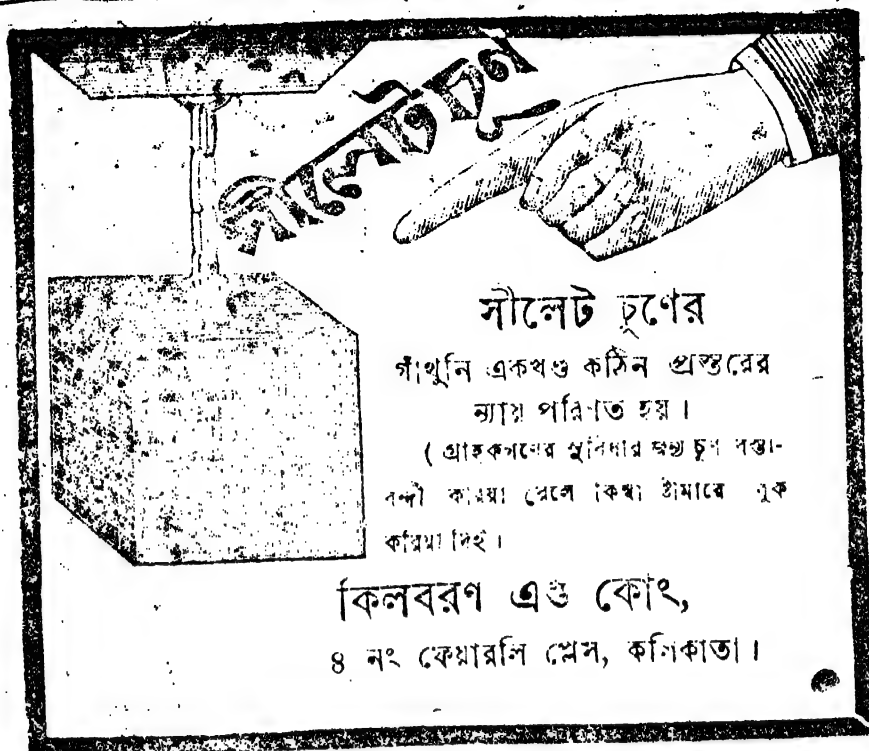 সীলেট চুণ
সীলেট চূণের
গাঁথুনি একখণ্ড কঠিন প্রস্তরের
ন্যায় পরিণত হয়।
( গ্রাহকগণের সুবিধার জন্য চূণ বস্তা-
বন্দী করিয়া রেলে কিম্বা ষ্টীমারে বুক
করিয়া দিই।
কিলবরণ এণ্ড কোং,
৪ নং ফেয়ারলি প্লেস, কলিকাতা।